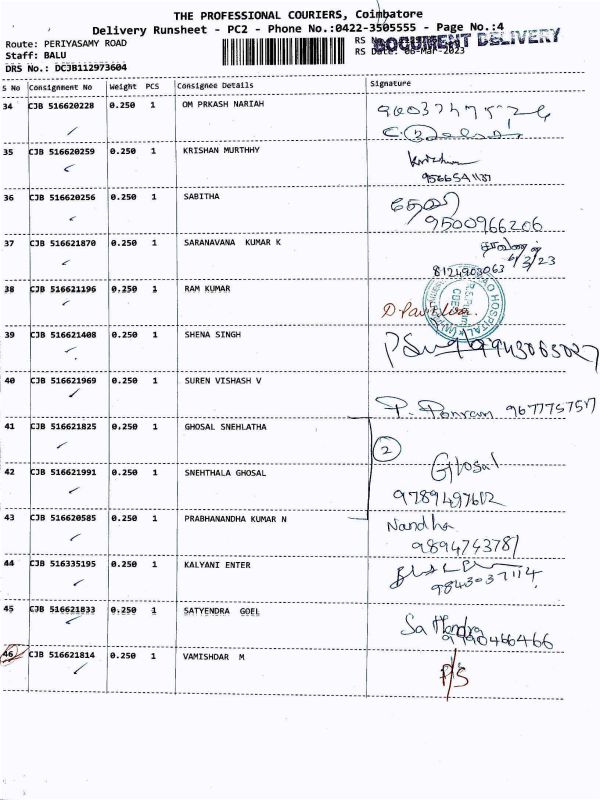 THE PROFESSIONAL COURIERS, Coimbatore
Delivery Runsheet - PC2 - Phone No.:0422-3505555 - Page No.:4
Route: PERIYASAMY ROAD
Staff: BALU
DRS No.: DCJB112973604
DOCUMENT DELIVERY
S No Consignment No Weight PCS Consignee Details Signature
34 CJB 516620228 0.250 1 OM PRKASH NARIAH
35 CJB 516620259 0.250 1 KRISHAN MURTHHY
9566541137
36 CJB 516620256 0.250 1 SABITHA
9500966206
37 CJB 516621870 0.250 1 SARANAVANA KUMAR K
6/3/23
8124903063
38 CJB 516621196 0.250 1 RAM KUMAR
39 CJB 516621408 0.250 1 SHENA SINGH
40 CJB 516621969 0.250 1 SUREN VISHASH V
P. Ponram 9677757517
41 CJB 516621825 0.250 1 GHOSAL SNEHLATHA
2
Ghosal
42 CJB 516621991 0.250 1 SNEHTHALA GHOSAL
9789497612
43 CJB 516620585 0.250 1 PRABHANANDHA KUMAR N
Nandha
9894743781
44 CJB 516335195 0.250 1 KALYANI ENTER
9843037114
45 CJB 516621833 0.250 1 SATYENDRA GOEL
9990466466
46 CJB 516621814 0.250 1 VAMISHDAR M
P/S